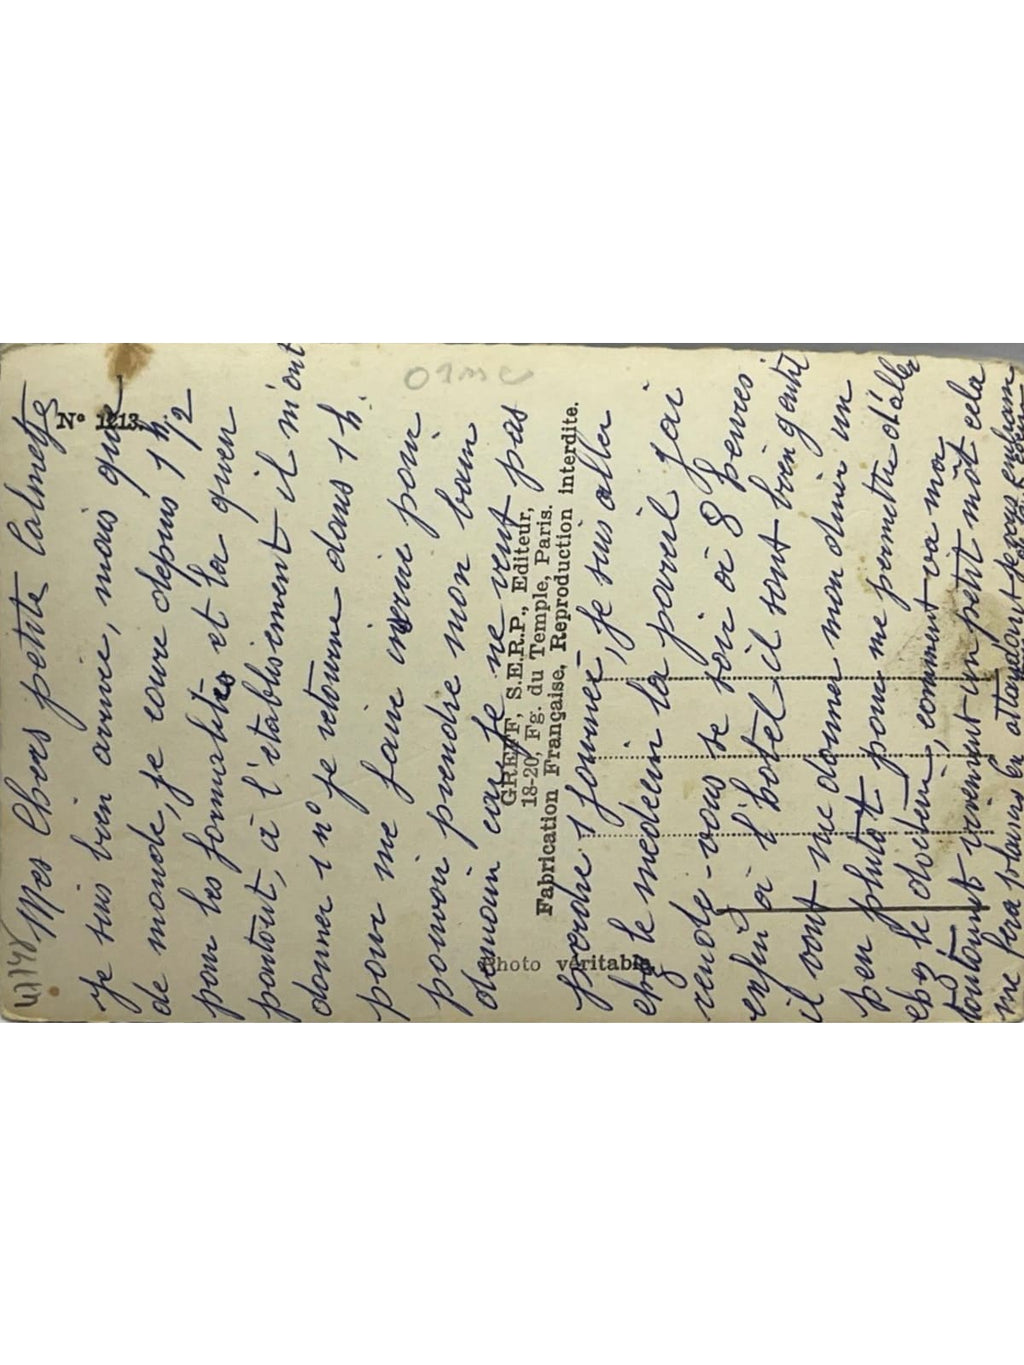 Mes Chères petite Calmette
je suis bien arrivée, mais que
de monde, je coure depuis 1 h. 1/2
pour les formalités et la queu
pantout, à l'établisiement il m'ont
donner 1 n° je retourne dans 1 h.
pour me faire inscrire pour
pouvoir prendre mon bain
demain car je ne veut pas
perdre 1 journeé, je suis aller
chez le medecin la pareil j'ai
rendez-vous se soir à 8 heures
enfin à l'hotel il sont bien gentil
il vont me donner mon diner un
peu plutot pour me permettre d'aller
chez le docteur, comment va ma
toutounet vivement un petit môt cela
me fera plaisir En attendant je vous
N° 1213
GREFF, S.E.R.P., Editeur,
18-20, Fg. du Temple, Paris.
Fabrication Française, Reproduction interdite.
Photo véritable